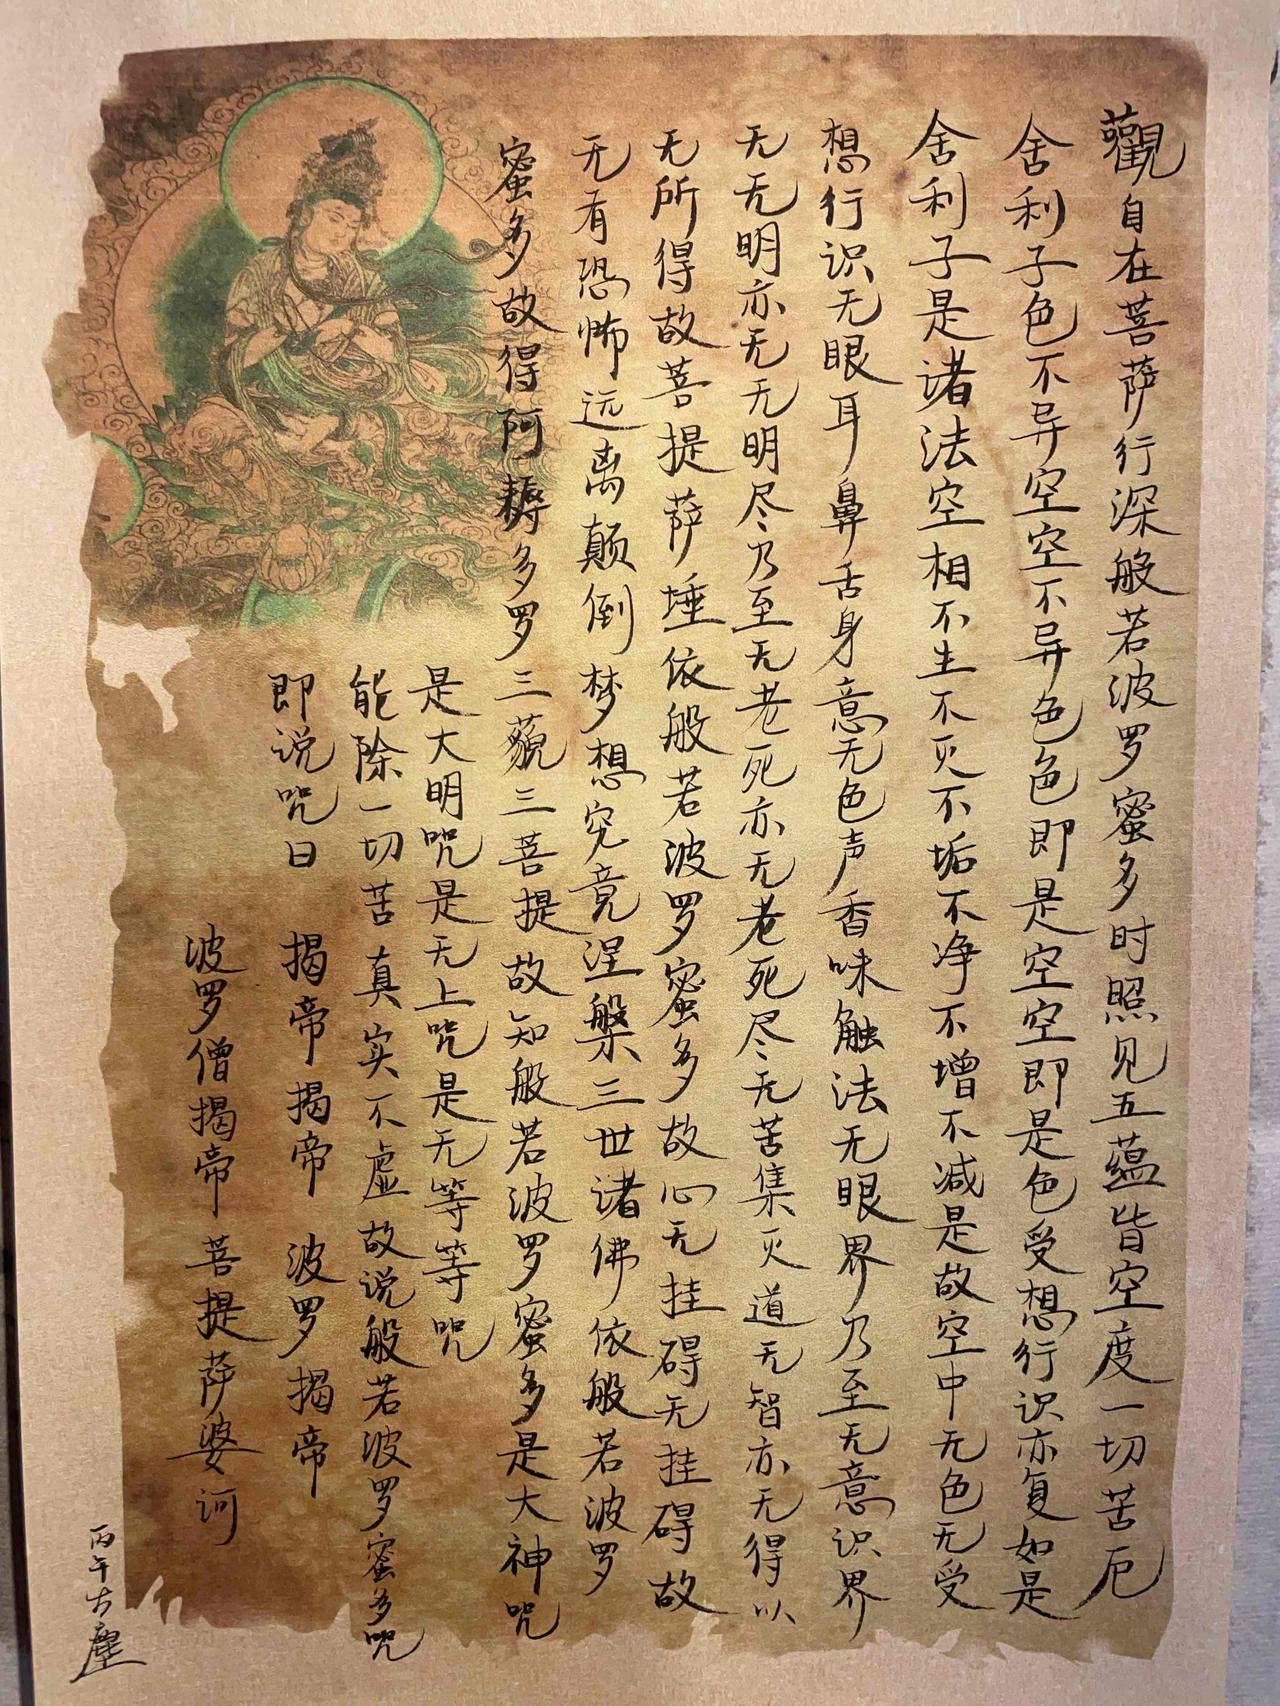 觀自在菩萨行深般若波罗蜜多时照见五蕴皆空度一切苦厄
舍利子色不异空空不异色色即是空空即是色受想行识亦复如是
舍利子是诸法空相不生不灭不垢不净不增不减是故空中无色无受
想行识无眼耳鼻舌身意无色声香味触法无眼界乃至无意识界
无无明亦无无明尽乃至无老死亦无老死尽无苦集灭道无智亦无得以
无所得故菩提萨埵依般若波罗蜜多故心无挂碍无挂碍故
无有恐怖远离颠倒梦想究竟涅槃三世诸佛依般若波罗
蜜多故得阿耨多罗三藐三菩提故知般若波罗蜜多是大神咒
是大明咒是无上咒是无等等咒
能除一切苦真实不虚故说般若波罗蜜多咒
即说咒曰 揭帝揭帝 波罗揭帝
波罗僧揭帝 菩提萨婆诃
丙午